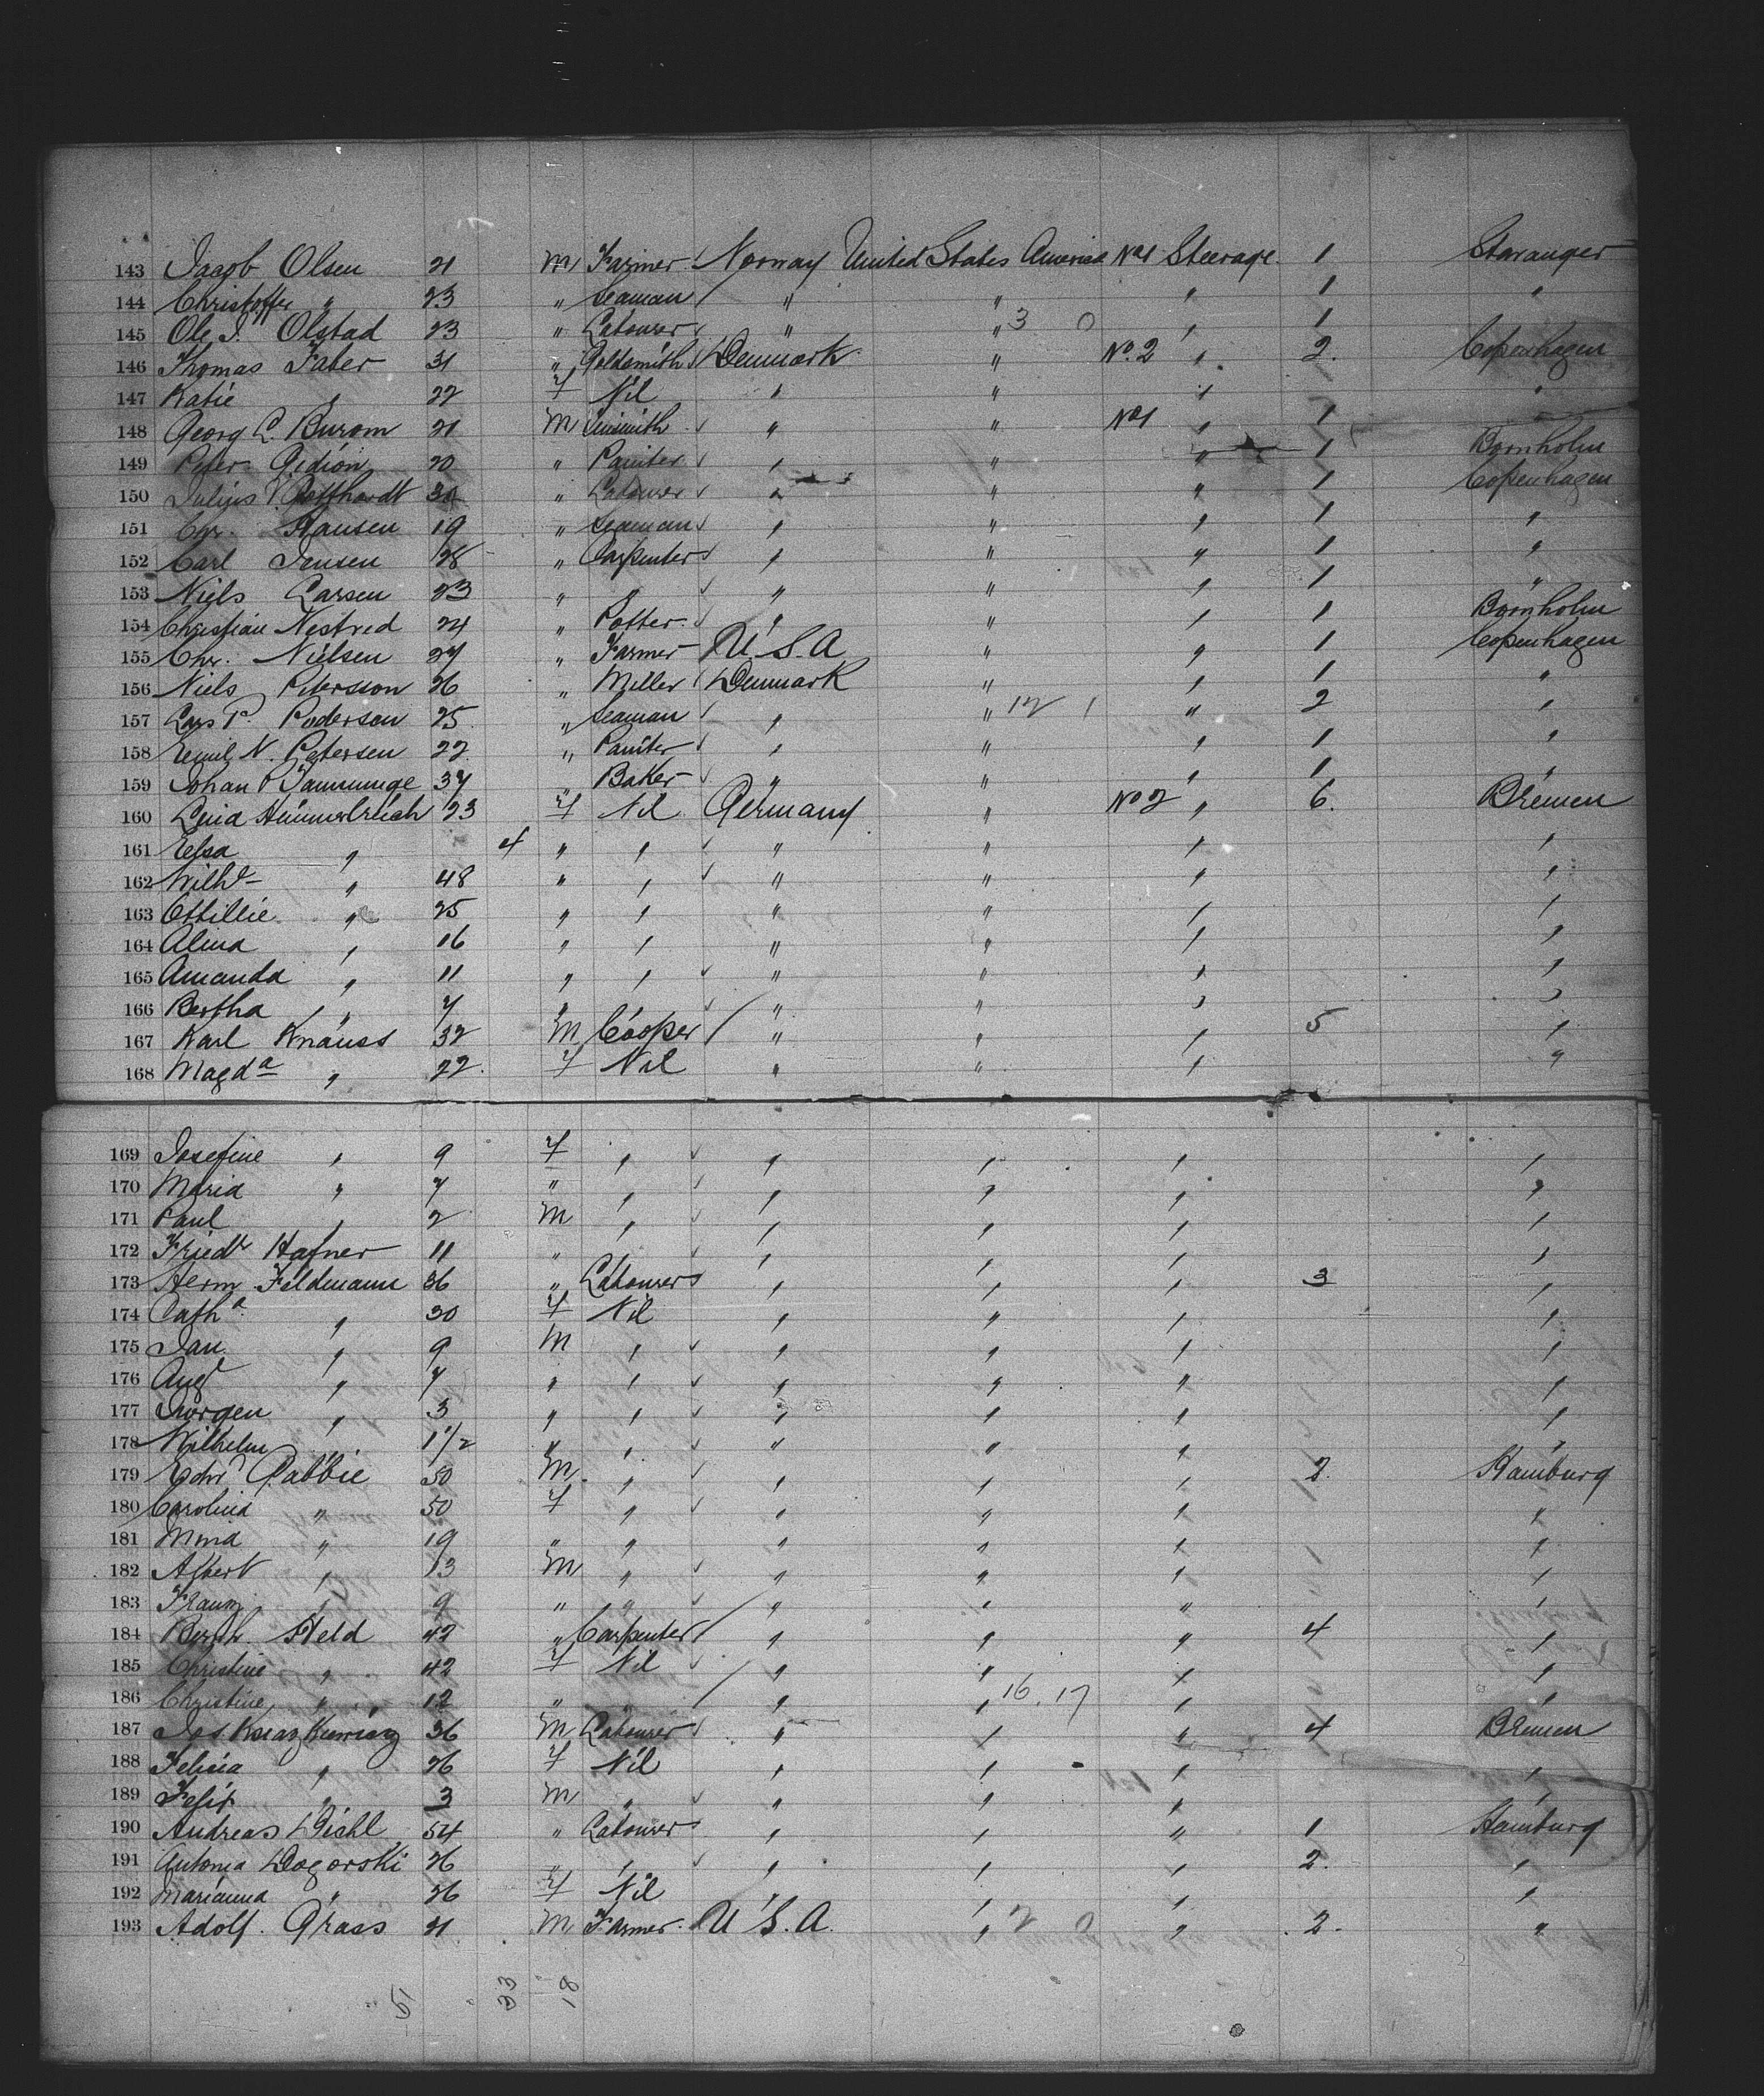 143 Jacob Olsen 21 M Farmer Norway United States America No 1 Steerage 1 Stavanger
144 Christoffer " 23 " Seaman " " " 1 "
145 Ole J. Olstad 23 " Labourer " " 3 0 " 1
146 Thomas Faber 31 " Goldsmith Denmark " No. 2 " 2. Copenhagen
147 Katie " 22 F Nil " " " "
148 Georg L. Burom 21 M Tinsmith " " No 1 " 1 "
149 Peter Gedion 20 " Painter " " " 1 Bornholm
150 Julius Potthardt " Labourer " " " 1 Copenhagen
151 Chr. Hansen 19 " Seaman " " " 1 "
152 Carl Jensen 28 " Carpenter " " " 1 "
153 Niels Larsen 23 " " " " " 1 "
154 Christian Nestved 24 " Potter " " " 1 Bornholm
155 Chr. Nielsen 27 " Farmer U.S.A " " 1 Copenhagen
156 Niels Petersson 26 " Miller Denmark " " 1 "
157 Lars P. Pedersen 25 " Seaman " " 12 1 " 2 "
158 Emil N. Petersen 22 " Painter " " " 1 "
159 Johan P 37 " Baker " " " 1 "
160 Lina Himmelreich 23 F Nil Germany " No 2 " 6. Bremen
161 Elsa " 4 " " " " " "
162 Wilhe " 48 " " " " " "
163 Ottillie " 25 " " " " " "
164 Alina " 16 " " " " " "
165 Amanda " 11 " " " " " "
166 Bertha " 7 " " " " "
167 Karl Knauss 32 M Cooper " " " 5 "
168 Magda " 22 F Nil " " " "
169 Josefine " 9 F " " " " "
170 Maria " 7 " " " " " "
171 Paul " 2 M " " " " "
172 Friedr Hafner 11 " " " " "
173 Herm Feldmann 36 " Labourer " " " 3 "
174 Catha " 30 F Nil " " " "
175 Jan " 9 M " " " " "
176 Aug " 7 " " " " " "
177 Jurgen " 3 " " " " " "
178 Wilhelm " 1 1/2 " " " " " "
179 Edwd Gabbie 50 M " " " " 2 Hamburg
180 Carolina " 50 F " " " " "
181 Mina " 19 " " " " " "
182 Albert " 13 M " " " " "
183 Franz " 9 " " " " " "
184 Bernh. Held 42 " Carpenter " " " 4 "
185 Christine " 42 F Nil " " " "
186 Christine " 12 " " " " 16. 17 " "
187 Jos. 36 M Labourer " " " 4 Bremen
188 Felicia " 26 F Nil " " " "
189 Felix " 3 M " " " " "
190 Andreas Diehl 54 " Labourer " " " 1 Hamburg
191 Antonia Dogorski 26 " " " " " 2. "
192 Marianna " 26 F Nil " " " "
193 Adolf. Grass 21 M Farmer. U.S.A. " 2 0 " 2. "
51 33 18